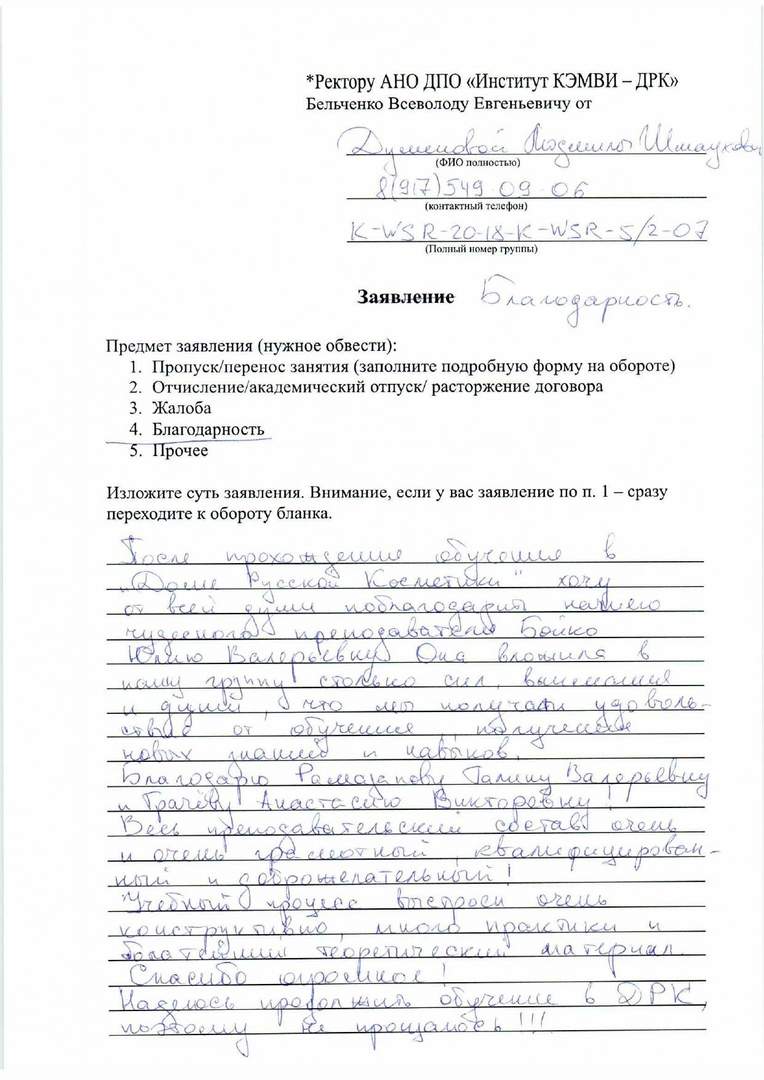 *Ректору АНО ДПО «Институт КЭМВИ – ДРК»
Бельченко Всеволоду Евгеньевичу от
Людмилы
(ФИО полностью)
8(917)549-09-06
(контактный телефон)
K-WSR-20-18-K-WSR-5/2-07
(Полный номер группы)
Заявление Благодарность.
Предмет заявления (нужное обвести):
1. Пропуск/перенос занятия (заполните подробную форму на обороте)
2. Отчисление/академический отпуск/ расторжение договора
3. Жалоба
4. Благодарность
5. Прочее
Изложите суть заявления. Внимание, если у вас заявление по п. 1 – сразу
переходите к обороту бланка.
После прохождения обучения в
„Доме Русской Косметики" хочу
от всей души поблагодарить нашего
чудесного преподавателя Бойко
Юлию Валерьевну Она вложила в
нашу группу столько сил, внимания
и души, что мы получали удоволь-
ствие от обучения, получения
новых знаний и навыков.
Благодарю Рамазанову Галину Валерьевну
и Грачёву Анастасию Викторовну!
Весь преподавательский состав очень
и очень грамотный, квалифицирован-
ный и доброжелательный!
Учебный процесс выстроен очень
конструктивно, много практики и
богатейший теоретический материал.
Спасибо огромное!
Надеюсь продолжить обучение в ДРК,
поэтому не прощаюсь!!!